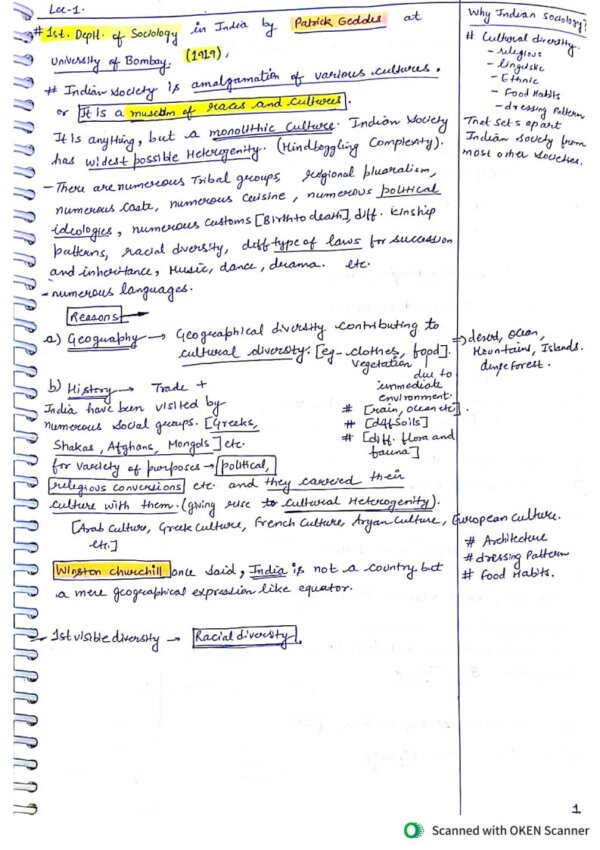 Lec-1.
# 1st. Deptt. of Sociology in India by Patrick Geddes at
University of Bombay. (1919).
# Indian Society is amalgamation of various cultures.
or It is a museum of races and cultures.
It is anything, but a monolithic culture. Indian Society
has widest possible Heterogenity. (Mindboggling Complexity).
- There are numerous Tribal groups, regional pluralism,
numerous caste, numerous cuisine, numerous political
ideologies, numerous customs [Birth to death], diff. kinship
patterns, racial diversity, diff type of laws for succession
and inheritance, Music, dance, drama. etc.
- numerous languages.
Reasons →
a) Geography → Geographical diversity contributing to
cultural diversity. [eg- clothes, food].
Vegetation due to
immediate
environment.
# [rain, ocean etc].
# [diff Soils]
# [diff. flora and
fauna]
b) History → Trade +
India have been visited by
numerous social groups. [Greeks,
Shakas, Afghans, Mongols] etc.
for variety of purposes → political,
religious conversions etc. and they carried their
culture with them. (giving rise to cultural Heterogenity).
[Arab Culture, Greek culture, French culture, Aryan Culture, European culture.
etc.]
Winston Churchill once said, India is not a country but
a mere geographical expression like equator.
- 1st visible diversity → Racial diversity.
Why Indian Sociology?
# Cultural diversity.
- religious
- linguistic
- Ethnic
- Food Habits
- dressing Pattern
That sets apart
Indian Society from
most other societies.
⇒ desert, Ocean,
Mountains, Islands.
dense forest.
# Architecture
# dressing Pattern
# Food Habits.
1
Scanned with OKEN Scanner